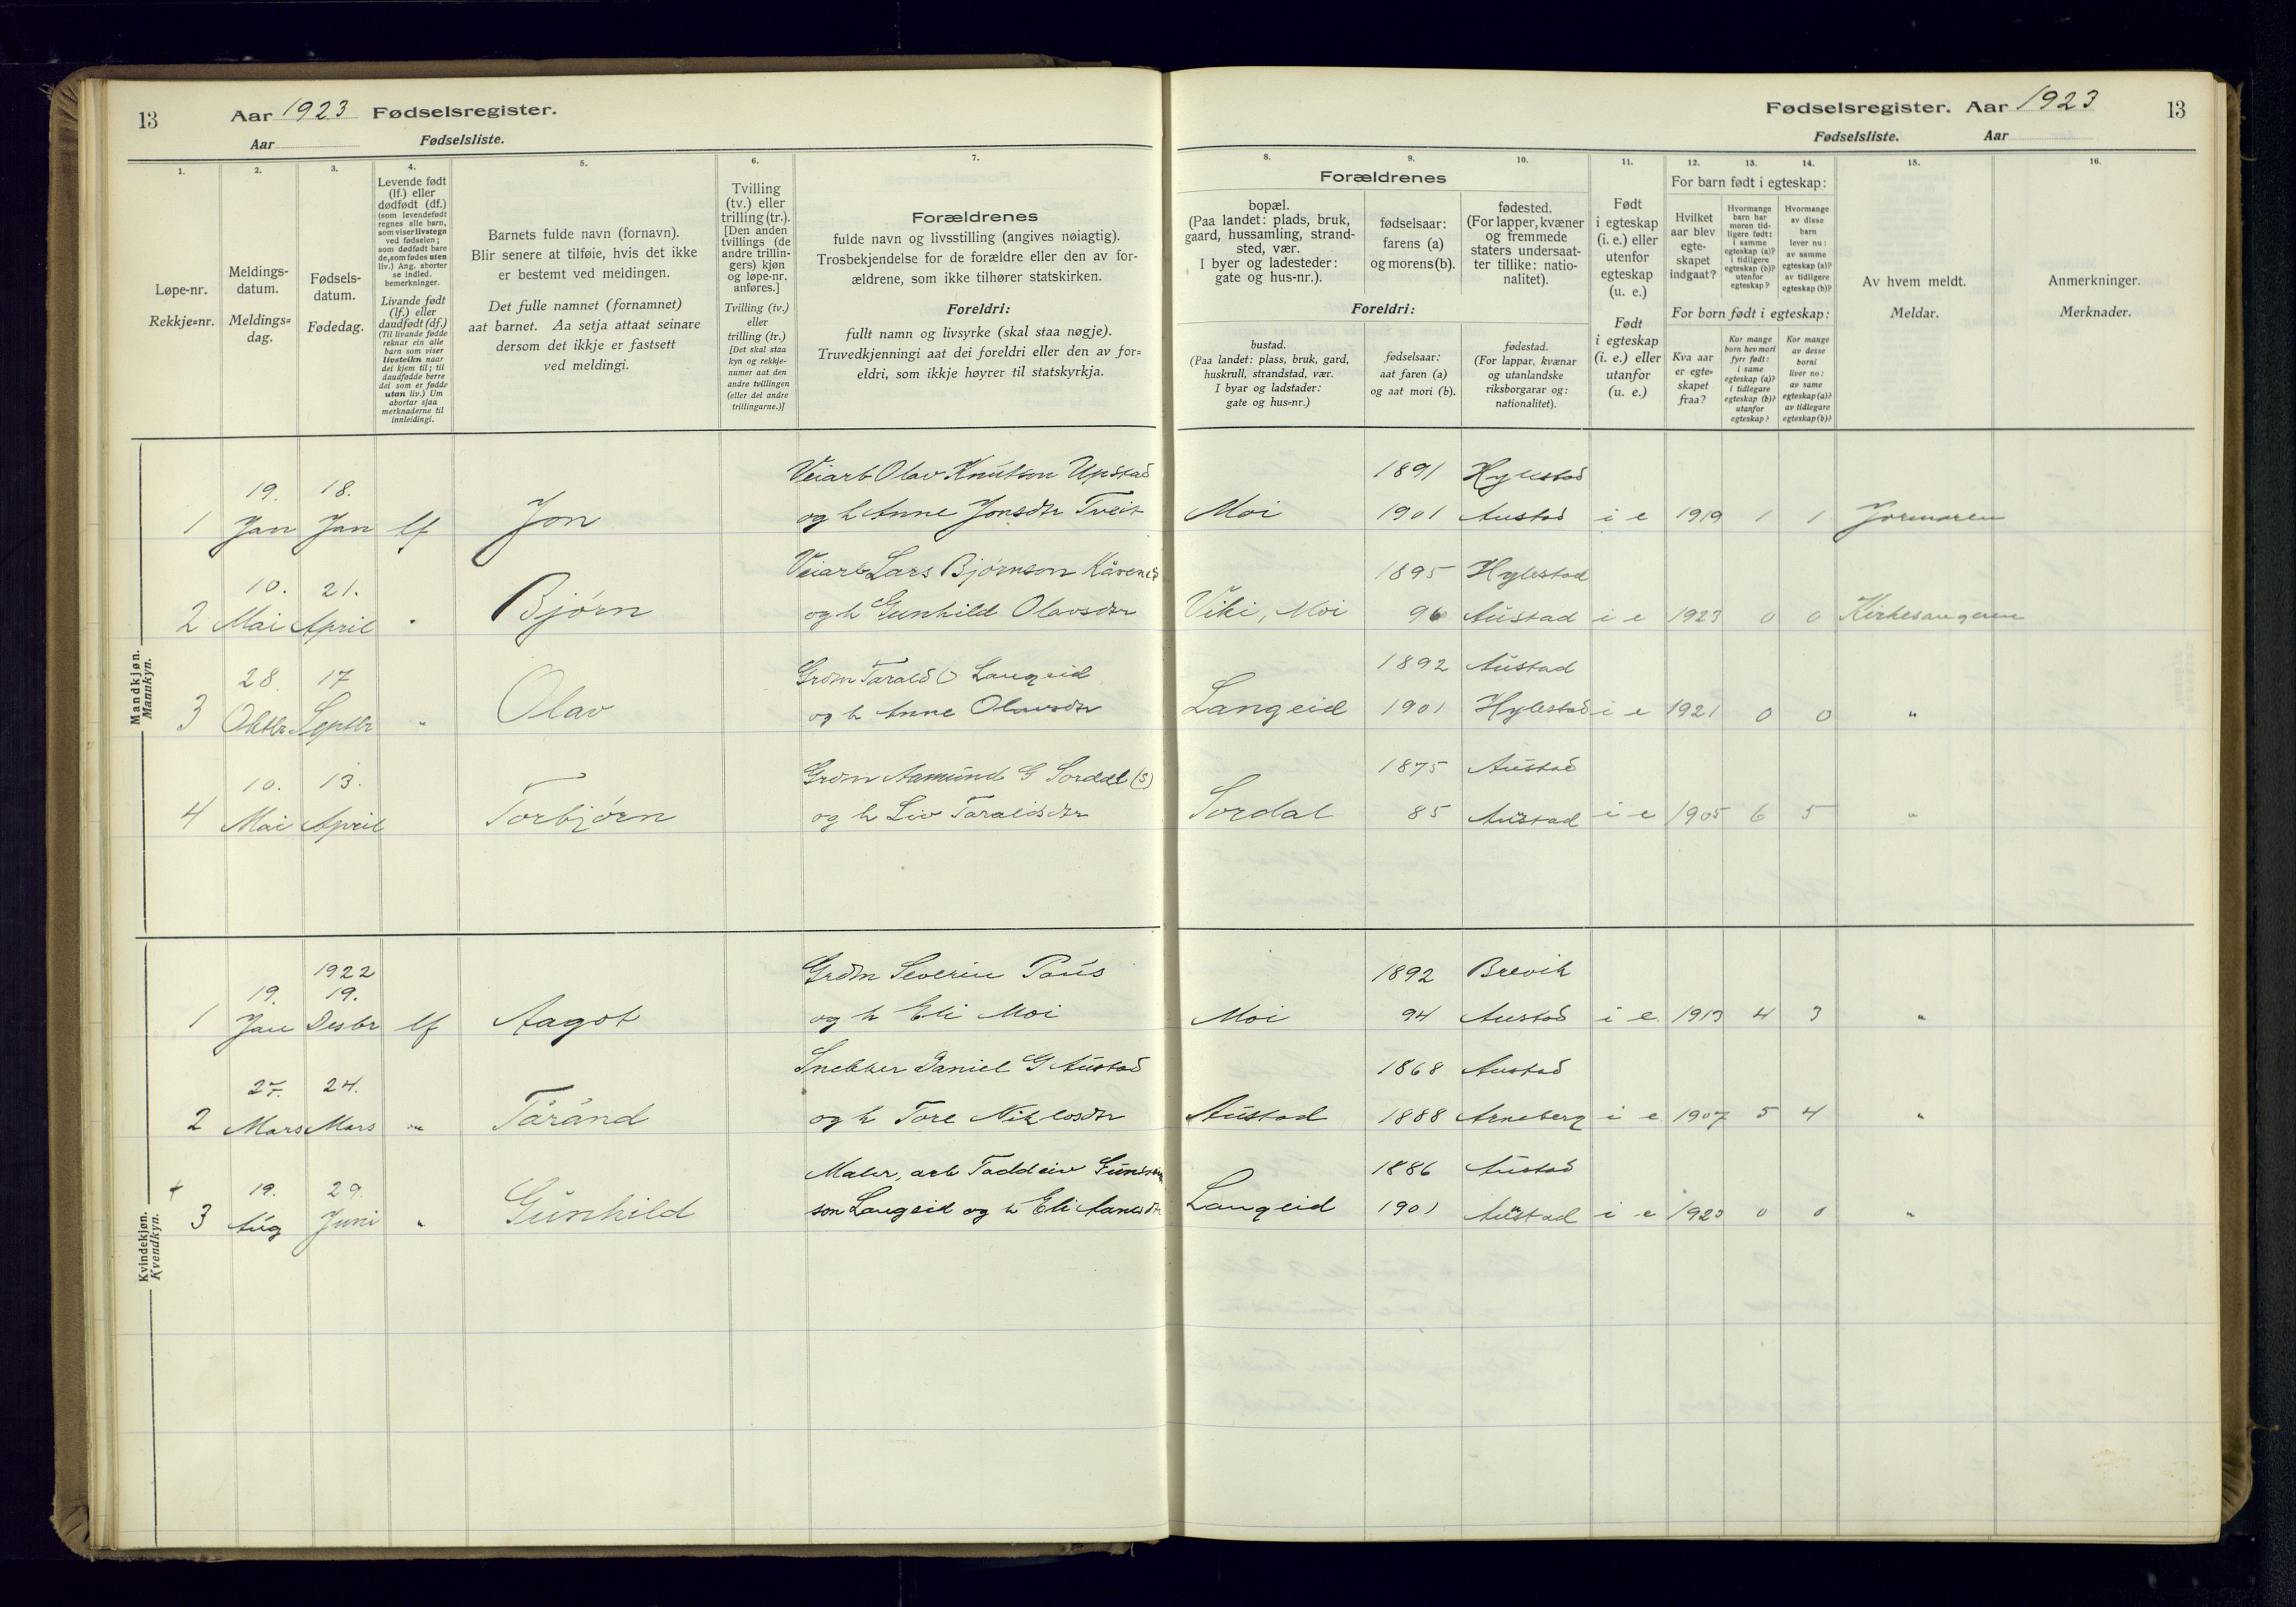 13 Aar 1923 Fødselsregister.
Aar Fødselsliste.
1. 2. 3. 4. 5. 6. 7.
Løpe-nr.
Rekkje=nr.
Meldings-
datum.
Meldings=
dag.
Fødsels-
datum.
Fødedag.
Levende født
(lf.) eller
dødfødt (df.)
(som levendefødt
regnes alle barn,
som viser livstegn
ved fødselen;
som dødfødt bare
de, som fødes uten
liv.) Ang. aborter
se indled.
bemerkninger.
Livande født
(lf.) eller
daudfødt (df.)
(Til livande fødde
reknar ein alle
barn som viser
livsteikn naar
dei kjem til; til
daudfødde berre
dei som er fødde
utan liv.) Um
abortar sjaa
merknaderne til
innleidingi.
Barnets fulde navn (fornavn).
Blir senere at tilføie, hvis det ikke
er bestemt ved meldingen.
Det fulle namnet (fornamnet)
aat barnet. Aa setja attaat seinare
dersom det ikkje er fastsett
ved meldingi.
Tvilling
(tv.) eller
trilling (tr.).
[Den anden
tvillings (de
andre trillin-
gers) kjøn
og løpe-nr.
anføres.]
Tvilling (tv.)
eller
trilling (tr.)
[Det skal staa
kyn og rekkje-
numer aat den
andre tvillingen
(eller dei andre
trillingarne.)]
Forældrenes
fulde navn og livsstilling (angives nøiagtig).
Trosbekjendelse for de forældre eller den av for-
ældrene, som ikke tilhører statskirken.
Foreldri:
fullt namn og livsyrke (skal staa nøgje).
Truvedkjenningi aat dei foreldri eller den av for=
eldri, som ikkje høyrer til statskyrkja.
Mandkjøn.
Mannkyn.
19. 18. Veiarb Olav Knutson Upstad
1 Jan Jan lf Jon og h Anne Jonsdtr Tveit
10. 21. Veiarb Lars Bjørnson Kåvenes
2 Mai April " Bjørn og h Gunhild Olavsdtr
28. 17 Grdm Tarald O Langeid
3 Oktbr Septbr " Olav og h Anne Olavsdtr
10. 13. Grdm Aamund G Sordal (S)
4 Mai April Torbjørn og h Liv Taraldsdtr
Kvindekjøn.
Kvendkyn.
1922 Grdm Severin Paus
19. 19.
1 Jan Desbr lf Aagot og h Eli Moi
27. 24. Snekker Daniel G Austad
2 Mars Mars " Tåránd og h Tore Niklosdtr
+ 19. 29. Maler, arb Taddeiv Gunstein
3 Aug Juni " Gunhild son Langeid og h Eli Aanesdtr
Fødselsregister. Aar 1923 13
Fødselsliste. Aar
8. 9. 10. 11. 12. 13. 14. 15. 16.
Forældrenes
bopæl.
(Paa landet: plads, bruk,
gaard, hussamling, strand-
sted, vær.
I byer og ladesteder:
gate og hus-nr.).
fødselsaar:
farens (a)
og morens (b).
fødested.
(For lapper, kvæner
og fremmede
staters undersaat-
ter tillike: natio-
nalitet).
Foreldri:
bustad.
(Paa landet: plass, bruk, gard,
huskrull, strandstad, vær.
I byar og ladstader:
gate og hus=nr.)
fødselsaar:
aat faren (a)
og aat mori (b).
fødestad.
(For lappar, kvænar
og utanlandske
riksborgarar og:
nationalitet).
Født
i egteskap
(i. e.) eller
utenfor
egteskap
(u. e.)
Født
i egteskap
(i. e.) eller
utanfor
(u. e.)
For barn født i egteskap:
Hvilket
aar blev
egte-
skapet
indgaat?
Hvormange
barn har
moren tid-
ligere født:
i samme
egteskap (a)?
i tidligere
egteskap (b)?
utenfor
egteskap?
Hvormange
av disse
barn
lever nu:
av samme
egteskap (a)?
av tidligere
egteskap (b)?
For born født i egteskap:
Kva aar
er egte=
skapet
fraa?
Kor mange
born hev mori
fyrr født:
i same
egteskap (a)?
i tidlegare
egteskap (b)?
utanfor
egteskap?
Kor mange
av desse
borni
liver no:
av same
egteskap (a)?
av tidlegare
egteskap (b)?
Av hvem meldt.
Meldar.
Anmerkninger.
Merknader.
1891 Hylestad
Moi 1901 Austad i e 1919 1 1 Jormoren
1895 Hylestad
Viki, Moi 96 Austad i e 1923 0 0 Kirkesangeren
1892 Austad
Langeid 1901 Hylestad i e 1921 0 0 "
1875 Austad
Sordal 85 Austad i e 1905 6 5 "
1892 Brevik
Moi 94 Austad i e. 1913 4 3 "
1868 Austad
Austad 1888 Arneberg i e. 1907 5 4 "
1886 Austad
Langeid 1901 Austad i e 1923 0 0 "